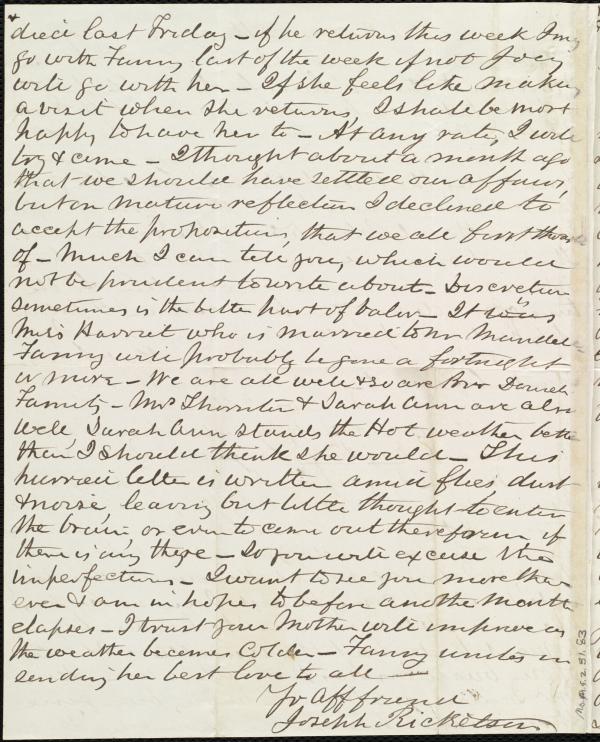 died last Friday – if he returns this week I may
go with Fanny last of the week if not Joey
will go with her – If she feels like making
a visit when she returns, I shall be most
happy to have her to – At any rate, I will
try & come – I thought about a month ago
that we should have settled our affairs,
but on mature reflection I declined to
accept the proposition, that we all first thought
of – Much I can tell you, which would
not be prudent to write about – Discretion
sometimes is the better part of valor – It was
Miss Harriet who is married to Mr
Fanny will probably be gone a fortnight
or more – We are all well & so are Bro Daniels
Family – Mrs Thornton & Sarah Ann are also
well, Sarah Ann stands the Hot weather better
than I should think she would – This
hurried letter is written amid flies, dust
& noise, leaving but little thought to enter
the brain, or even to come out therefrom if
there is any there – So you will excuse the
imperfections – I want to see you more than
ever & am in hopes to before another month
elapses – I trust your Mother will improve as
the weather becomes Colder – Fanny unites in
sending her best love to all –
Yr Aff friend
Joseph Ricketson